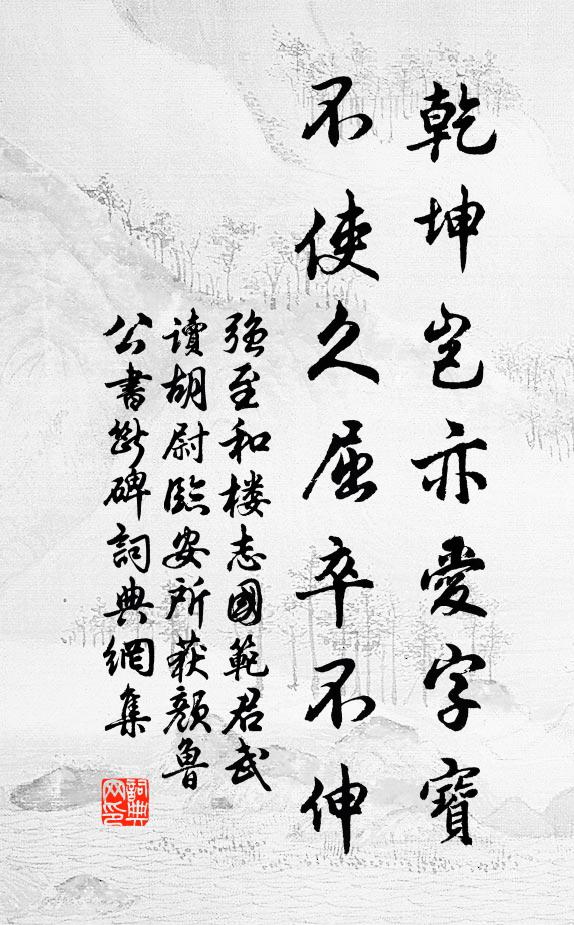 乾坤豈亦愛字寶
不使久屈卒不伸
強至和楼志國範君武
讀胡尉臨安所获顏魯
公書斷碑詞典網集
詞典
网印